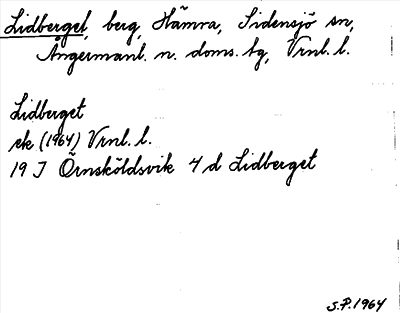 Lidberget, berg, Hämra, Sidensjö sn,
Ångermanl. n. doms. tg, Vrnl. l.
Lidberget
ek (1964) Vrnl. l.
19 J Örnsköldsvik 4 d Lidberget
S.P. 1964